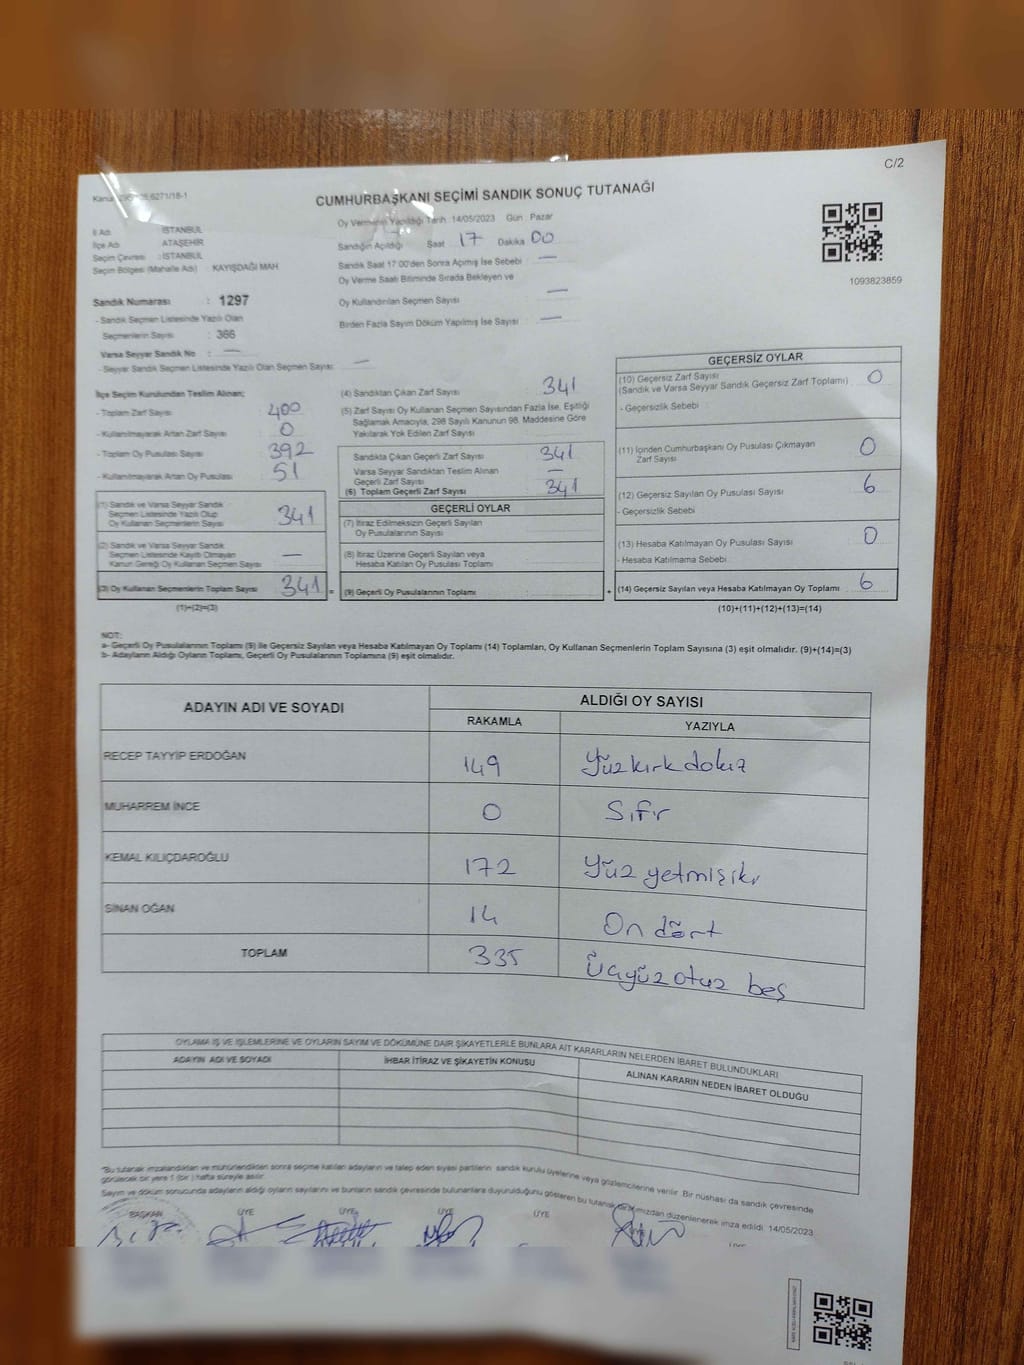 C/2
CUMHURBAŞKANI SEÇİMİ SANDIK SONUÇ TUTANAĞI
İl Adı : İSTANBUL
İlçe Adı : ATAŞEHİR
Seçim Çevresi : İSTANBUL
Seçim Bölgesi (Mahalle Adı) : KAYIŞDAĞI MAH
Sandık Numarası : 1297
- Sandık Seçmen Listesinde Yazılı Olan
Seçmenlerin Sayısı : 366
Varsa Seyyar Sandık No : —
- Seyyar Sandık Seçmen Listesinde Yazılı Olan Seçmen Sayısı : —
Oy Vermenin Yapıldığı Tarih : 14/05/2023 Gün : Pazar
Sandığın Açıldığı Saat 17 Dakika 00
Sandık Saat 17:00'den Sonra Açılmış İse Sebebi : —
Oy Verme Saati Bitiminde Sırada Bekleyen ve
Oy Kullandırılan Seçmen Sayısı —
Birden Fazla Sayım Döküm Yapılmış İse Sayısı : —
1093823859
İlçe Seçim Kurulundan Teslim Alınan;
- Toplam Zarf Sayısı : 400
- Kullanılmayarak Artan Zarf Sayısı : 0
- Toplam Oy Pusulası Sayısı : 392
- Kullanılmayarak Artan Oy Pusulası : 51
(1) Sandık ve Varsa Seyyar Sandık
Seçmen Listesinde Yazılı Olup
Oy Kullanan Seçmenlerin Sayısı 341
(2) Sandık ve Varsa Seyyar Sandık
Seçmen Listesinde Kayıtlı Olmayan
Kanun Gereği Oy Kullanan Seçmen Sayısı —
(3) Oy Kullanan Seçmenlerin Toplam Sayısı 341 =
(1)+(2)=(3)
(4) Sandıktan Çıkan Zarf Sayısı : 341
(5) Zarf Sayısı Oy Kullanan Seçmen Sayısından Fazla İse, Eşitliği
Sağlamak Amacıyla, 298 Sayılı Kanunun 98. Maddesine Göre
Yakılarak Yok Edilen Zarf Sayısı
Sandıkta Çıkan Geçerli Zarf Sayısı 341
Varsa Seyyar Sandıktan Teslim Alınan
Geçerli Zarf Sayısı —
(6) Toplam Geçerli Zarf Sayısı 341
GEÇERLİ OYLAR
(7) İtiraz Edilmeksizin Geçerli Sayılan
Oy Pusulalarının Sayısı
(8) İtiraz Üzerine Geçerli Sayılan veya
Hesaba Katılan Oy Pusulası Toplamı
(9) Geçerli Oy Pusulalarının Toplamı +
GEÇERSİZ OYLAR
(10) Geçersiz Zarf Sayısı
(Sandık ve Varsa Seyyar Sandık Geçersiz Zarf Toplamı) 0
- Geçersizlik Sebebi :
(11) İçinden Cumhurbaşkanı Oy Pusulası Çıkmayan
Zarf Sayısı : 0
(12) Geçersiz Sayılan Oy Pusulası Sayısı : 6
- Geçersizlik Sebebi :
(13) Hesaba Katılmayan Oy Pusulası Sayısı : 0
- Hesaba Katılmama Sebebi :
(14) Geçersiz Sayılan veya Hesaba Katılmayan Oy Toplamı : 6
(10)+(11)+(12)+(13)=(14)
NOT:
a- Geçerli Oy Pusulalarının Toplamı (9) ile Geçersiz Sayılan veya Hesaba Katılmayan Oy Toplamı (14) Toplamları, Oy Kullanan Seçmenlerin Toplam Sayısına (3) eşit olmalıdır. (9)+(14)=(3)
b- Adayların Aldığı Oyların Toplamı, Geçerli Oy Pusulalarının Toplamına (9) eşit olmalıdır.
ADAYIN ADI VE SOYADI ALDIĞI OY SAYISI
RAKAMLA YAZIYLA
RECEP TAYYİP ERDOĞAN 149 Yüzkırkdokuz
MUHARREM İNCE 0 Sıfır
KEMAL KILIÇDAROĞLU 172 Yüz yetmişiki
SİNAN OĞAN 14 On dört
TOPLAM 335 Üçyüzotuz beş
OYLAMA İŞ VE İŞLEMLERİNE VE OYLARIN SAYIM VE DÖKÜMÜNE DAİR ŞİKAYETLERLE BUNLARA AİT KARARLARIN NELERDEN İBARET BULUNDUKLARI
ADAYIN ADI VE SOYADI İHBAR İTİRAZ VE ŞİKAYETİN KONUSU ALINAN KARARIN NEDEN İBARET OLDUĞU
*Bu tutanak imzalandıktan ve mühürlendikten sonra seçime katılan adayların ve talep eden siyasi partilerin sandık kurulu üyelerine veya gözlemcilerine verilir. Bir nüshası da sandık çevresinde
görülecek bir yere 1 (bir) hafta süreyle asılır.
Sayım ve döküm sonucunda adayların aldığı oyların sayılarını ve bunların sandık çevresinde bulunanlara duyurulduğunu gösteren bu tutanak tarafımızdan düzenlenerek imza edildi. 14/05/2023
BAŞKAN ÜYE ÜYE ÜYE ÜYE